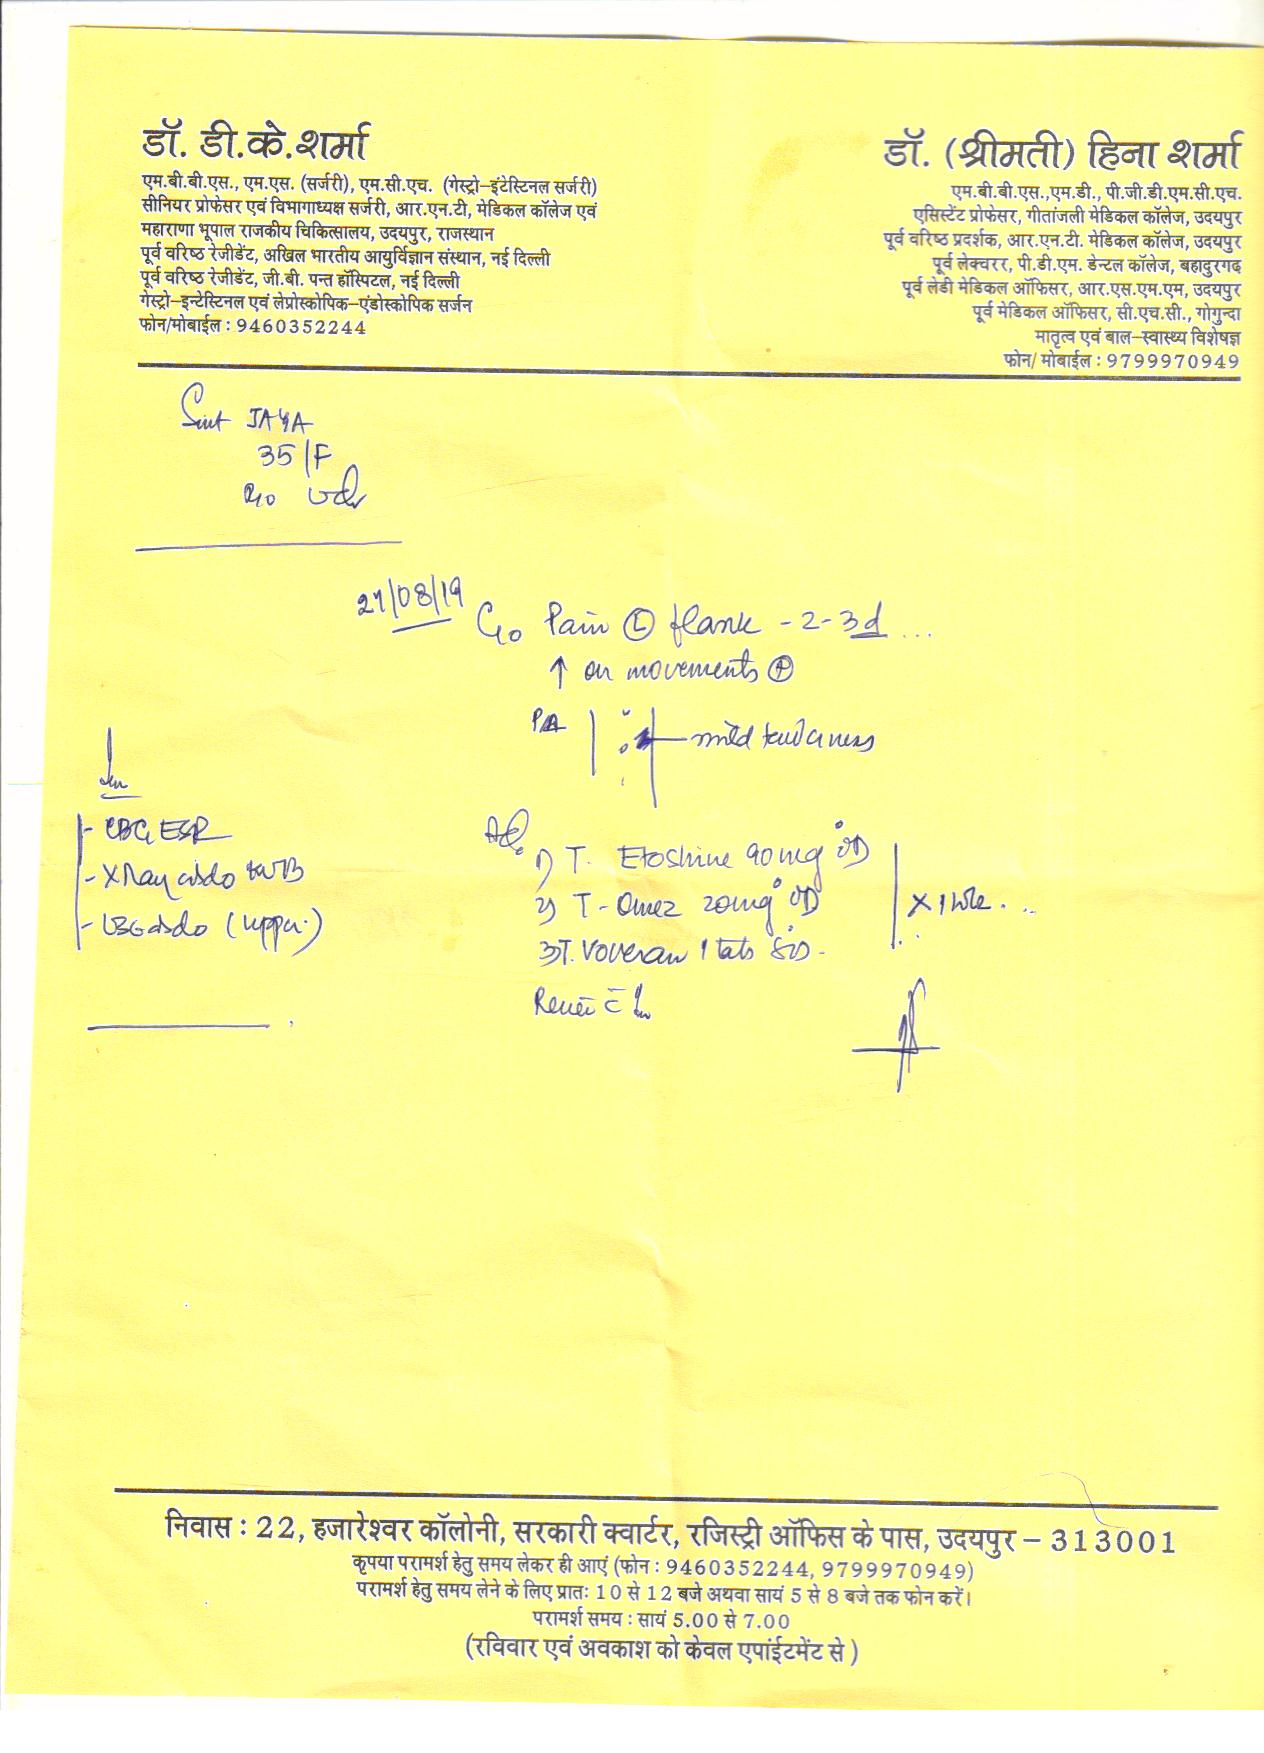 डॉ. डी.के.शर्मा
एम.बी.बी.एस., एम.एस. (सर्जरी), एम.सी.एच. (गेस्ट्रो–इंटेस्टिनल सर्जरी)
सीनियर प्रोफेसर एवं विभागाध्यक्ष सर्जरी, आर.एन.टी, मेडिकल कॉलेज एवं
महाराणा भूपाल राजकीय चिकित्सालय, उदयपुर, राजस्थान
पूर्व वरिष्ठ रेजीडेंट, अखिल भारतीय आयुर्विज्ञान संस्थान, नई दिल्ली
पूर्व वरिष्ठ रेजीडेंट, जी.बी. पन्त हॉस्पिटल, नई दिल्ली
गेस्ट्रो–इन्टेस्टिनल एवं लेप्रोस्कोपिक–एंडोस्कोपिक सर्जन
फोन/मोबाईल : 9460352244
डॉ. (श्रीमती) हिना शर्मा
एम.बी.बी.एस.,एम.डी., पी.जी.डी.एम.सी.एच.
एसिस्टेंट प्रोफेसर, गीतांजली मेडिकल कॉलेज, उदयपुर
पूर्व वरिष्ठ प्रदर्शक, आर.एन.टी. मेडिकल कॉलेज, उदयपुर
पूर्व लेक्चरर, पी.डी.एम. डेन्टल कॉलेज, बहादुरगढ़
पूर्व लेडी मेडिकल ऑफिसर, आर.एस.एम.एम, उदयपुर
पूर्व मेडिकल ऑफिसर, सी.एच.सी., गोगुन्दा
मातृत्व एवं बाल–स्वास्थ्य विशेषज्ञ
फोन/ मोबाईल : 9799970949
Smt JAYA
35/F
R/o Udr
27/08/19
C/o Pain (L) flank - 2-3d ...
↑ on movements (+)
P/A
mild tenderness
- CBC, ESR
- X Ray abdo KUB
- USG abdo (Upper)
Adv.
1) T. Etoshine 90mg OD
2) T - Omez 20mg OD
3) T. Voveran 1 tab
x 1 wk ...
निवास : 22, हजारेश्वर कॉलोनी, सरकारी क्वार्टर, रजिस्ट्री ऑफिस के पास, उदयपुर – 313001
कृपया परामर्श हेतु समय लेकर ही आएं (फोन : 9460352244, 9799970949)
परामर्श हेतु समय लेने के लिए प्रातः 10 से 12 बजे अथवा सायं 5 से 8 बजे तक फोन करें।
परामर्श समय : सायं 5.00 से 7.00
(रविवार एवं अवकाश को केवल एपांईटमेंट से )